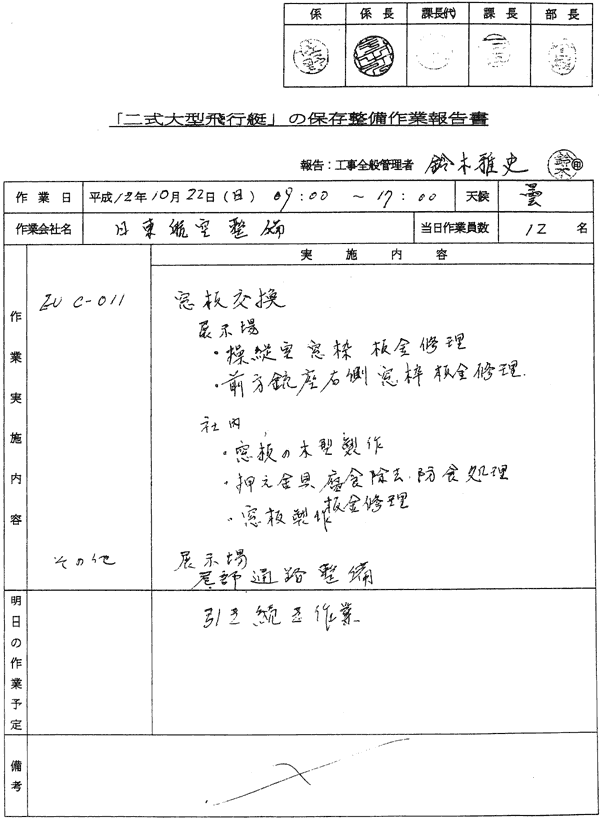 係 係長 課長(代) 課長 部長
「二式大型飛行艇」の保存整備作業報告書
報告：工事全般管理者 鈴木雅史 鈴木
作業日 平成12年10月22日(日) 09:00 ～ 17:00 天候 曇
作業会社名 日東航空整備 当日作業員数 12 名
作業実施内容
実施内容
EU C-011 窓板交換
展示場
・操縦室窓枠 板金修理
・前方銃座右側窓枠 板金修理.
社内
・窓板の木型製作
・押え金具腐食除去.防食処理
板金修理
・窓板製作
その他 展示場
尾部通路整備
明日の作業予定
引き続き作業
備考